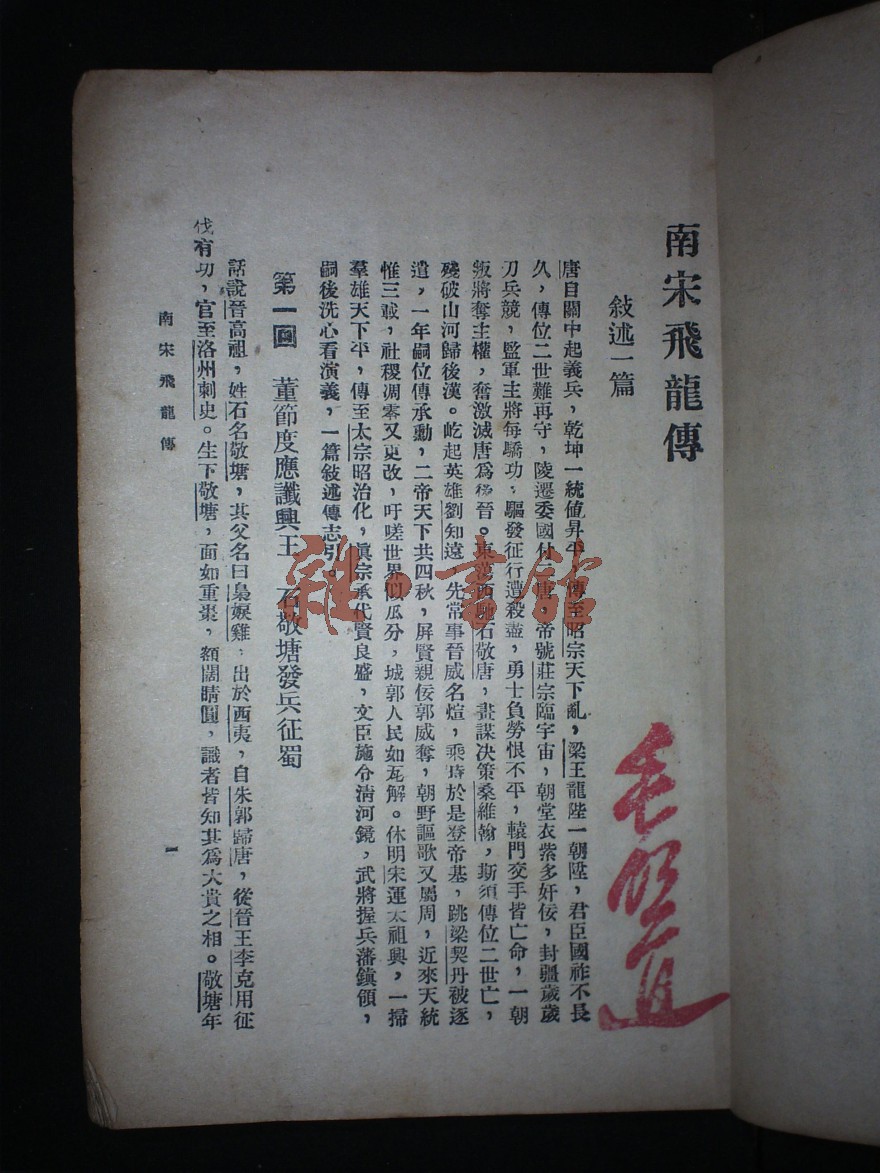 南宋飛龍傳
敍述一篇
唐自關中起義兵，乾坤一統値昇平，傳至昭宗天下亂，梁王龍陛一朝陞，君臣國祚不長
久，傳位二世難再守，陵遷委國付二唐。帝號莊宗臨宇宙，朝堂衣紫多奸佞，封疆歲歲
刃兵競，監軍主將每驕功，驅發征行遭殺盡，勇士負勞恨不平，轅門交手皆亡命，一朝
叛將奪主權，奮激滅唐爲晉。東蕩西馳石敬唐，畫謀决策桑維翰，斯須傳位二世亡，
殘破山河歸後漢。屹起英雄劉知遠，先常事晉威名煊，乘時於是登帝基，跳梁契丹被逐
遣，一年嗣位傳承勳，二帝天下共四秋，屏賢親佞郭威奪，朝野謳歌又屬周，近來天統
惟三載，社稷凋零又更改，吁嗟世界似瓜分，城郭人民如瓦解。休明宋運太祖興，一掃
羣雄天下平，傳至太宗昭治化，眞宗承代賢良盛，文臣施令淸河鏡，武將握兵藩鎭領，
嗣後洗心看演義，一篇敍述傳志引。
第一回　董節度應讖興王　石敬塘發兵征蜀
話說晉高祖，姓石名敬塘，其父名曰臬捩雞，出於西夷，自朱郭歸唐，從晉王李克用征
伐有功，官至洛州刺史。生下敬塘，面如重棗，額闊睛圓，識者皆知其爲大貴之相。敬塘年
南宋飛龍傳
一
雜·書館